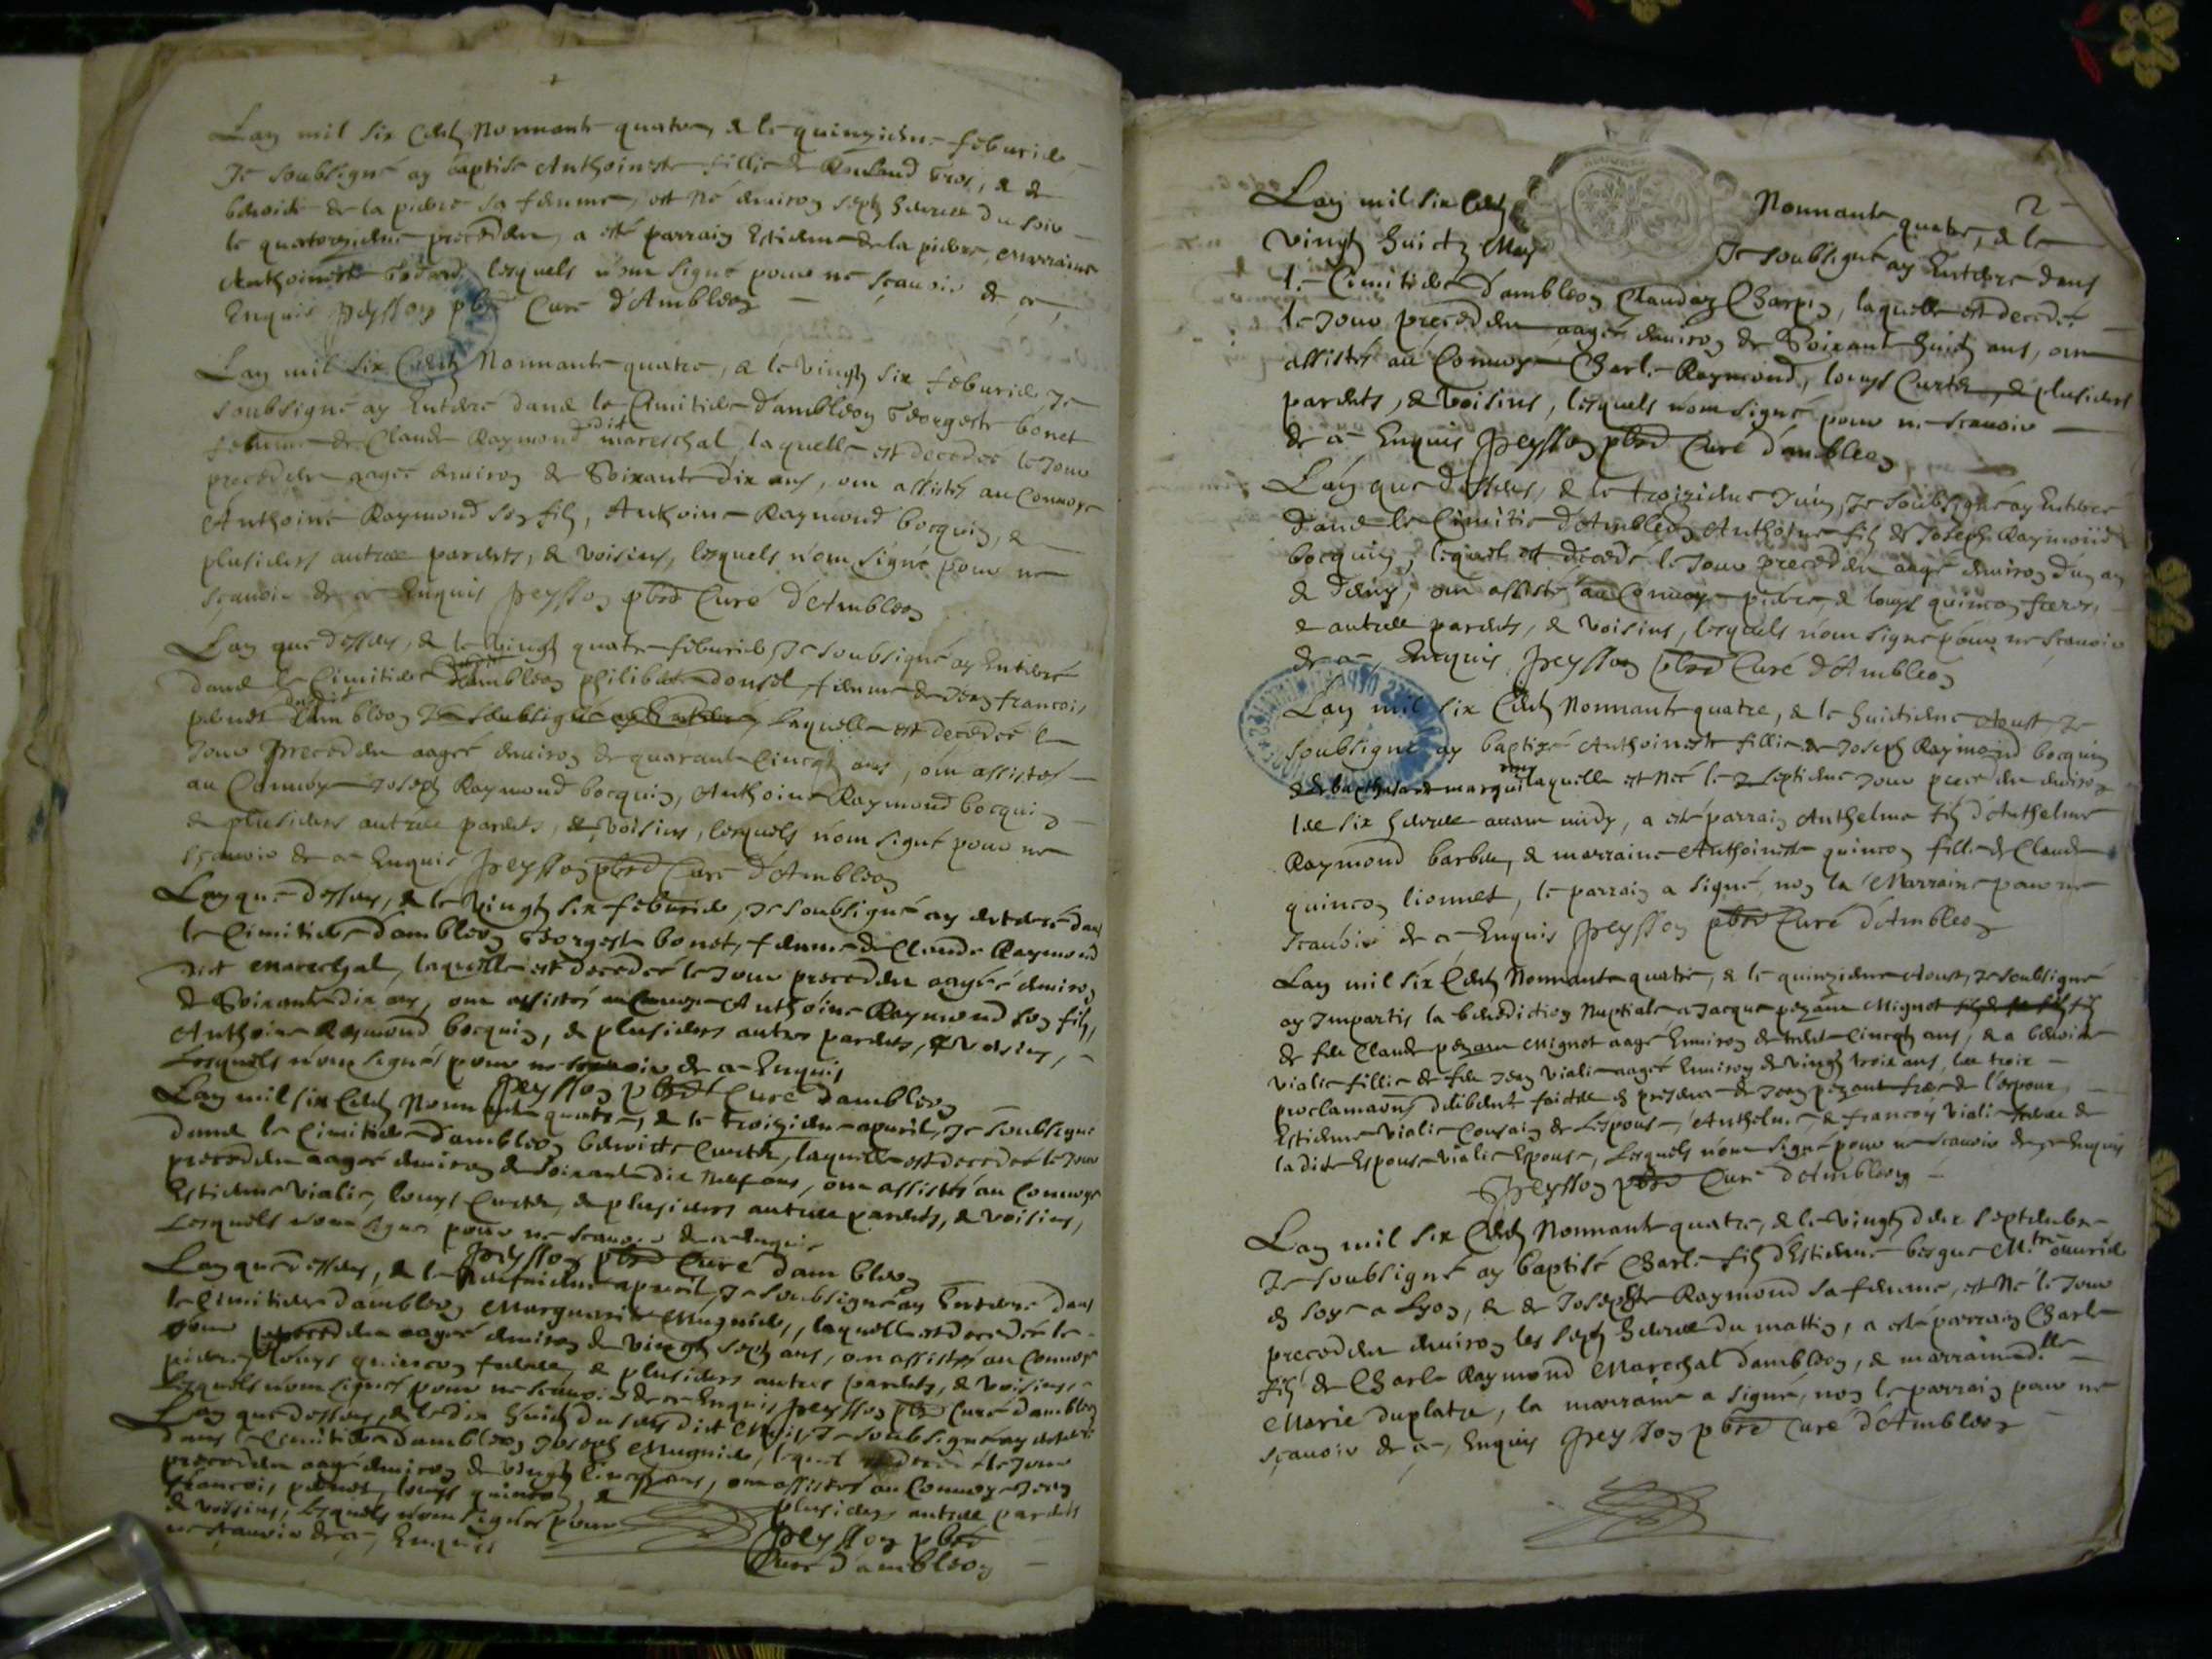 Lan mil six Centz Nonnante quatre, & le quinziesme feburier
Je soubsigné ay baptisé Anthoineste fillie de Rouland Gros, & de
benoiste de la pierre sa femme, est né environ sept heures du soir
le quatorziesme precedent, a esté parrain Estienne de la pierre, & marraine
Anthoineste lesquels n'ont signé pour ne sçavoir de ce
Enquis Jreysson pbre Curé d'Ambleon
Lan mil six Centz Nonnante quatre, & le vingt six feburier Je
soubsigné ay Enterré dans le Cimitiere d'ambleon Georgeste bonet
femme de Claude Raymond dit mareschal, laquelle est decedée le Jour
precedent aagée environ de Soixante dix ans, ont assistés au Convoye
Anthoine Raymond son filz, Anthoine Raymond bocquin, &
plusieurs autres parents, & voisins, lesquels n'ont signé pour ne
sçavoir de ce Enquis Jreysson pbre Curé d'Ambleon
Lan que dessus, & le vingt quatre feburier, Je soubsigné ay Enterré
dans le Cimitiere d'ambleon philiberte donsel, femme de Jean francois
pernet dudit d'ambleon Je soubsigné ay Enterré, laquelle est decedée le
Jour precedent aagée environ de quarante Cincq ans, ont assistés
au Convoye Joseph Raymond bocquin, Anthoine Raymond bocquin
& plusieurs autres parents, & voisins, lesquels n'ont signé pour ne
sçavoir de ce Enquis Jreysson pbre Curé d'Ambleon
Lan que dessus, & le vingt six feburier, Je soubsigné ay enterré dans
le Cimitiere d'ambleon Georgeste bonet, femme de Claude Raymond
dit Mareschal, laquelle est decedée le Jour precedent aagée environ
de Soixante dix ans, ont assistés au Convoye Anthoine Raymond son filz,
Anthoine Raymond bocquin, & plusieurs autres parents, & voisins,
Lesquels n'ont signés pour ne sçavoir de ce Enquis
Jreysson pbre Curé dambleon
Lan mil six Centz Nonnante quatre, & le troiziesme apvril, Je soubsigné
dans le Cimitiere d'ambleon benoiste Curtet, laquelle est decedée le Jour
precedent aagée environ de soixante dix neuf ans, ont assistés au Convoye
Estienne Vialie, louys Curtet, & plusieurs autres parents, & voisins,
Lesquels n'ont signés pour ne scavoir de ce Enquis
Jreysson pbre Curé dambleon
Lan que dessus, & le Neufviesme apvril, Je soubsigné ay Enterré dans
le Cimitiere d'ambleon Marguerite Mugnier, laquelle est decedée le
Jour precedent aagée environ de vingt sept ans, ont assistés au Convoye
pierre, & louys quincon freres, & plusieurs autres parents, & voisins
Lesquels n'ont signés pour ne scavoir de ce Enquis Jreysson pbre Curé dambleon
Lan que dessus, & le dix huict du sus dict Mois, Je soubsigné ay enterré
dans le Cimitiere dambleon Joseph Mugnier, lequel est decedé le Jour
precedent aagé environ de vingt Cincq ans, ont assistés au Convoye Jean
francois pernet, louys quincon, & plusieurs autres parents
& voisins, Lesquels n'ont signés pour
ne scavoir de ce Enquis Jreysson pbre
Curé d'ambleon
2
Lan mil six Centz Nonnante quatre, & le
vingt huict May Je soubsigné ay Enterré dans
le Cimitiere d'ambleon Claudaz Charpin, laquelle est decedée
le Jour precedent aagée environ de Soixante huict ans, ont
assistés au Convoye Charle Raymond, louys Curtet, & plusieurs
parents, & voisins, lesquels n'ont signé pour ne scavoir
de ce Enquis Jreysson pbre Curé d'ambleon
Lan que dessus, & le troiziesme Juin, Je soubsigné ay Enterré
dans le Cimitie d'Ambleon Anthoine filz de Joseph Raymond
bocquin, lequel est decedé le Jour precedent aagé environ d'un an
& demy, ont assisté au Convoye pierre, & louys quincon freres,
& autres parents, & voisins, lesquels n'ont signé pour ne scavoir
de ce, Enquis Jreysson pbre Curé d'Ambleon
Lan mil six Centz Nonnante quatre, & le huictiesme Aoust, Je
soubsigné ay baptizé Anthoineste fillie de Joseph Raymond bocquin
laquelle est née le septiesme Jour precedent environ
les six heures avant midy, a esté parrain Anthelme filz d'Anthelme
Raymond barbe, & marraine Anthoineste quincon fille de Claude
quincon lionnet, le parrain a signé, non la Marraine pour ne
scavoir de ce Enquis Jreysson pbre Curé d'Ambleon
Lan mil six Centz Nonnante quatre, & le quinziesme Aoust, Je soubsigné
ay Impartis la benediction Nuptiale a Jacque pezant Mignot
de feu Claude pezant Mignot aagé Environ de trente Cincq ans, & a benoiste
Vialie fillie de feu Jean Vialie aagée Environ de vingt trois ans, les trois
proclamaons faictes en presence de Jean pezant frere de l'espoux,
Estienne Vialie Cousain de Lespouse, Anthelme, & francois Vialie freres de
la dite Espouse Vialie Espouse, Lesquels n'ont signé pour ne scavoir de ce Enquis
Jreysson pbre Curé d'Ambleon
Lan mil six Centz Nonnante quatre, & le vingt deux Septembre
Je soubsigné ay baptisé Charle filz d'Estienne besque Mtre ouvrier
en soye a Lyon, & de Josephte Raymond sa femme, est Né le Jour
precedent environ les sept heures du mattin, a esté parrain Charle
filz de Charle Raymond Marechal d'ambleon, & marraine dlle
Marie duplatre, la marraine a signé, non le parrain pour ne
sçavoir de ce, Enquis Jreysson pbre Curé d'Ambleon